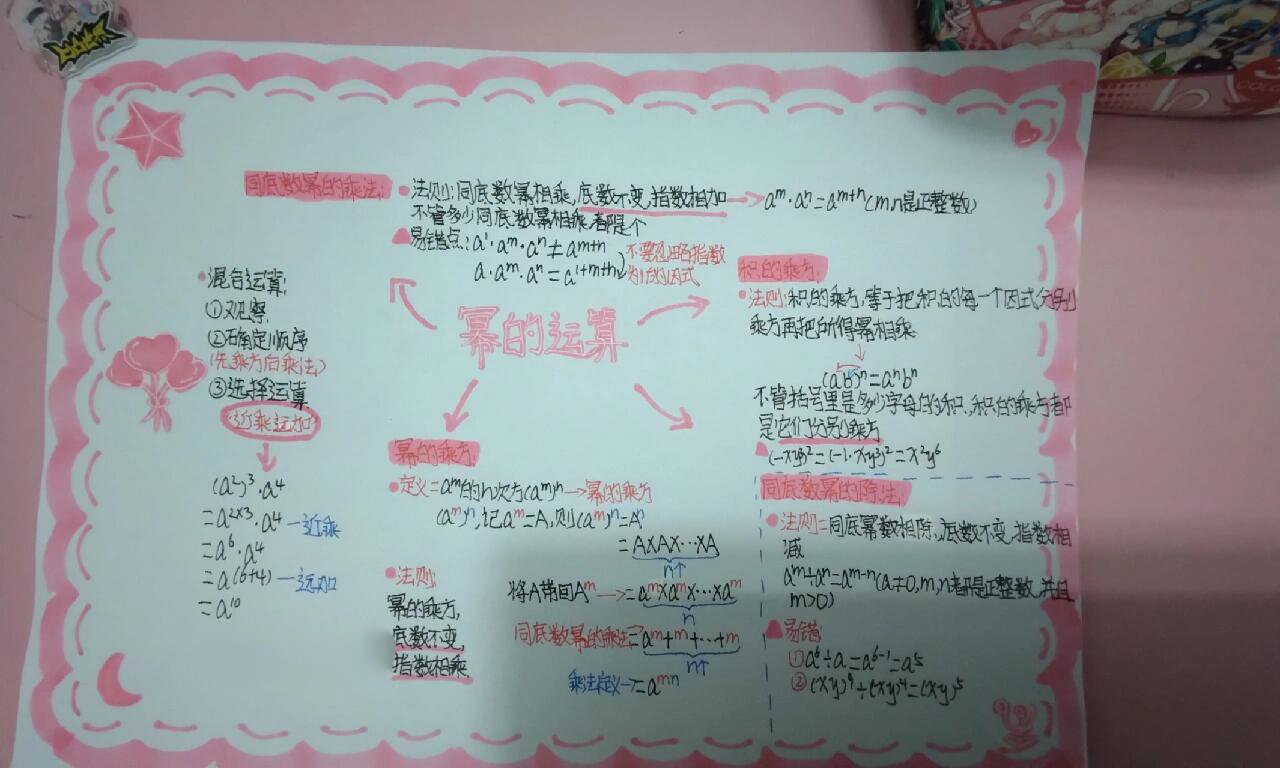 同底数幂的乘法:
法则:同底数幂相乘,底数不变,指数相加→a^m·a^n=a^{m+n}(m,n是正整数)
不管多少同底数幂相乘,都是个
易错点:a^1·a^m·a^n≠a^{m+n}
a·a^m·a^n=a^{1+m+n}
不要忽略指数
为1的因式
混合运算:
①观察,
②确定顺序
(先乘方后乘法)
③选择运算
近乘远加
(a^2)^3·a^4
=a^{2×3}·a^4—近乘
=a^6·a^4
=a^{(6+4)}—远加
=a^{10}
幂的运算
积的乘方:
法则:积的乘方,等于把积的每一个因式分别
乘方再把所得幂相乘
(ab)^n=a^nb^n
不管括号里是多少字母的积,积的乘方都
是它们分别乘方
(-xy^3)^2=(-1·xy^3)^2=x^2y^6
幂的乘方,
定义=a^m的n次方(a^m)^n→幂的乘方
(a^m)^n,记a^m=A,则(a^m)^n=A^n
=A×A×···×A
n个
将A带回A^m→=a^m×a^m×···×a^m
n
同底数幂的乘法=a^{m+m+···+m}
n个
乘法定义→=a^{mn}
法则:
幂的乘方,
底数不变,
指数相乘.
同底数幂的除法:
法则=同底幂数相除,底数不变,指数相
减
a^m÷a^n=a^{m-n}(a≠0,m,n都是正整数,并且
m>0)
易错:
①a^6÷a=a^{6-1}=a^5
②(xy)^9÷(xy)^4=(xy)^5